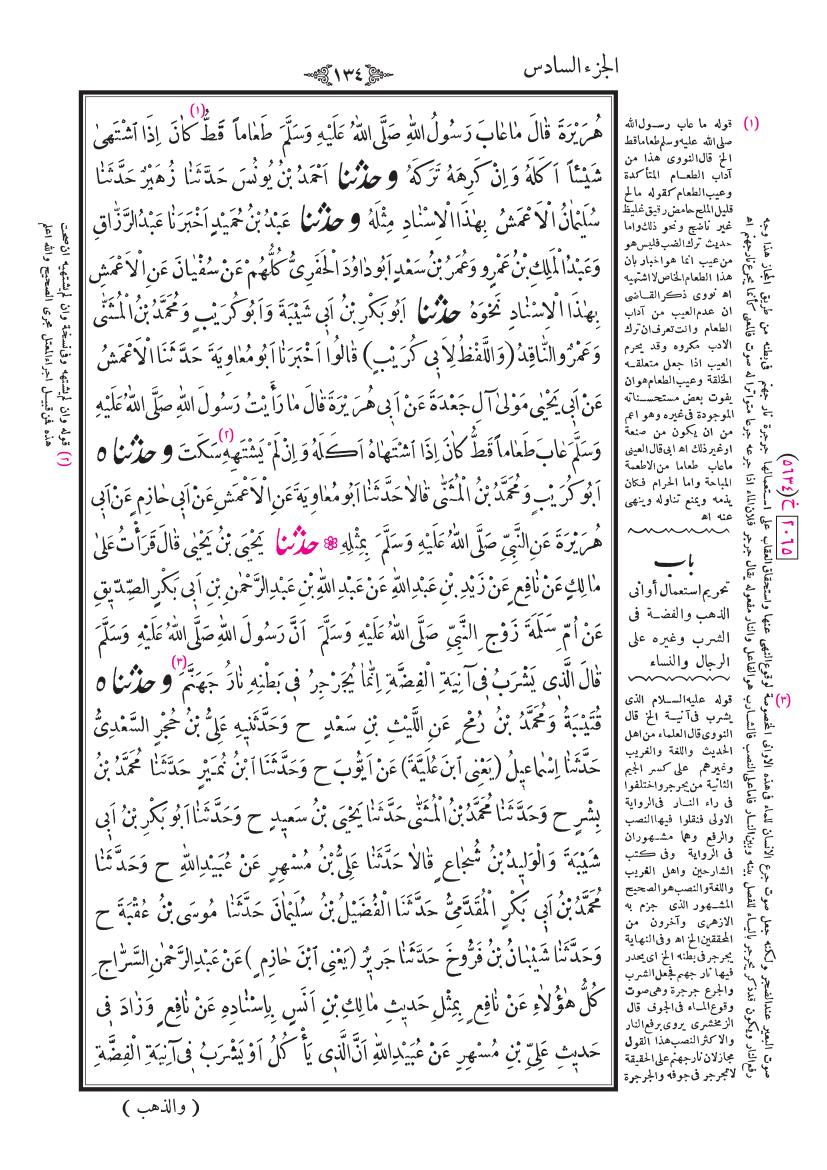 الجزء السادس
١٣٤
هُرَيْرَةَ قَالَ مَا عَابَ رَسُولُ اللهِ صَلَّى اللهُ عَلَيْهِ وَسَلَّمَ طَعَاماً قَطُّ (١) كَانَ إِذَا اشْتَهىٰ
شَيْئاً أَكَلَهُ وَإِنْ كَرِهَهُ تَرَكَهُ وحدثنا أَحْمَدُ بْنُ يُونُسَ حَدَّثَنَا زُهَيْرٌ حَدَّثَنَا
سُلَيْمَانُ الْأَعْمَشُ بِهٰذَا الْإِسْنَادِ مِثْلَهُ وحدثنا عَبْدُ بْنُ حُمَيْدٍ أَخْبَرَنَا عَبْدُ الرَّزَّاقِ
وَعَبْدُ الْمَلِكِ بْنُ عَمْرٍو وَعُمَرُ بْنُ سَعْدٍ أَبُو دَاوُدَ الْحَفَرِىُّ كُلُّهُمْ عَنْ سُفْيَانَ عَنِ الْأَعْمَشِ
بِهٰذَا الْإِسْنَادِ نَحْوَهُ حدثنا أَبُو بَكْرِ بْنُ أَبِى شَيْبَةَ وَأَبُو كُرَيْبٍ وَمُحَمَّدُ بْنُ الْمُثَنَّى
وَعَمْرٌو النَّاقِدُ (وَاللَّفْظُ لِأَبِى كُرَيْبٍ) قَالُوا أَخْبَرَنَا أَبُو مُعَاوِيَةَ حَدَّثَنَا الْأَعْمَشُ
عَنْ أَبِى يَحْيىٰ مَوْلىٰ آلِ جَعْدَةَ عَنْ أَبِى هُرَيْرَةَ قَالَ مَا رَأَيْتُ رَسُولَ اللهِ صَلَّى اللهُ عَلَيْهِ
وَسَلَّمَ عَابَ طَعَاماً قَطُّ كَانَ إِذَا اشْتَهَاهُ أَكَلَهُ وَإِنْ لَمْ يَشْتَهِهِ (٢) سَكَتَ وحدثناه
أَبُو كُرَيْبٍ وَمُحَمَّدُ بْنُ الْمُثَنَّى قَالَا حَدَّثَنَا أَبُو مُعَاوِيَةَ عَنِ الْأَعْمَشِ عَنْ أَبِى حَازِمٍ عَنْ أَبِى
هُرَيْرَةَ عَنِ النَّبِىِّ صَلَّى اللهُ عَلَيْهِ وَسَلَّمَ بِمِثْلِهِ حدثنا يَحْيَى بْنُ يَحْيىٰ قَالَ قَرَأْتُ عَلىٰ
مَالِكٍ عَنْ نَافِعٍ عَنْ زَيْدِ بْنِ عَبْدِ اللهِ عَنْ عَبْدِ اللهِ بْنِ عَبْدِ الرَّحْمٰنِ بْنِ أَبِى بَكْرٍ الصِّدِّيقِ
عَنْ أُمِّ سَلَمَةَ زَوْجِ النَّبِىِّ صَلَّى اللهُ عَلَيْهِ وَسَلَّمَ أَنَّ رَسُولَ اللهِ صَلَّى اللهُ عَلَيْهِ وَسَلَّمَ
قَالَ الَّذِى يَشْرَبُ فِى آنِيَةِ الْفِضَّةِ إِنَّمَا يُجَرْجِرُ فِى بَطْنِهِ نَارُ جَهَنَّمَ (٣) وحدثناه
قُتَيْبَةُ وَمُحَمَّدُ بْنُ رُمْحٍ عَنِ اللَّيْثِ بْنِ سَعْدٍ ح وَحَدَّثَنِيهِ عَلِىُّ بْنُ حُجْرٍ السَّعْدِىُّ
حَدَّثَنَا إِسْمَاعِيلُ (يَعْنِى ابْنَ عُلَيَّةَ) عَنْ أَيُّوبَ ح وَحَدَّثَنَا ابْنُ نُمَيْرٍ حَدَّثَنَا مُحَمَّدُ بْنُ
بِشْرٍ ح وَحَدَّثَنَا مُحَمَّدُ بْنُ الْمُثَنَّى حَدَّثَنَا يَحْيَى بْنُ سَعِيدٍ ح وَحَدَّثَنَا أَبُو بَكْرِ بْنُ أَبِى
شَيْبَةَ وَالْوَلِيدُ بْنُ شُجَاعٍ قَالَا حَدَّثَنَا عَلِىُّ بْنُ مُسْهِرٍ عَنْ عُبَيْدِ اللهِ ح وَحَدَّثَنَا
مُحَمَّدُ بْنُ أَبِى بَكْرٍ الْمُقَدَّمِىُّ حَدَّثَنَا الْفُضَيْلُ بْنُ سُلَيْمَانَ حَدَّثَنَا مُوسَى بْنُ عُقْبَةَ ح
وَحَدَّثَنَا شَيْبَانُ بْنُ فَرُّوخَ حَدَّثَنَا جَرِيرٌ (يَعْنِى ابْنَ حَازِمٍ) عَنْ عَبْدِ الرَّحْمٰنِ السَّرَّاجِ
كُلُّ هٰؤُلَاءِ عَنْ نَافِعٍ بِمِثْلِ حَدِيثِ مَالِكِ بْنِ أَنَسٍ بِإِسْنَادِهِ عَنْ نَافِعٍ وَزَادَ فِى
حَدِيثِ عَلِىِّ بْنِ مُسْهِرٍ عَنْ عُبَيْدِ اللهِ أَنَّ الَّذِى يَأْكُلُ أَوْ يَشْرَبُ فِى آنِيَةِ الْفِضَّةِ
( والذهب )
(١) قوله ما عاب رسول الله
صلى الله عليه وسلم طعاما قط
الخ قال النووى هذا من
آداب الطعام المتأكدة
وعيب الطعام كقوله مالح
قليل الملح حامض رقيق غليظ
غير ناضج ونحو ذلك واما
حديث ترك الضب فليس هو
من عيب انما هو اخبار بان
هذا الطعام الخاص لا اشتهيه
اه نووى ذكر القاضى
ان عدم العيب من آداب
الطعام وانت تعرف ان ترك
الادب مكروه وقد يحرم
العيب اذا جعل متعلقه
الخلقة وعيب الطعام هو ان
يفوت بعض مستحسناته
الموجودة فى غيره وهو اعم
من ان يكون من صنعة
او غير ذلك اه ابى قال العينى
ماعاب طعاما من الاطعمة
المباحة واما الحرام فكان
يذمه ويمنع تناوله وينهى
عنه اه
باب
تحريم استعمال أوانى
الذهب والفضة فى
الشرب وغيره على
الرجال والنساء
(٣) قوله عليه السلام الذى
يشرب فى آنية الخ قال
النووى قال العلماء من اهل
الحديث واللغة والغريب
وغيرهم على كسر الجيم
الثانية من يجرجر واختلفوا
فى راء النار فى الرواية
الاولى فنقلوا فيها النصب
والرفع وهما مشهوران
فى الرواية وفى كتب
الشارحين واهل الغريب
واللغة والنصب هو الصحيح
المشهور الذى جزم به
الازهرى وآخرون من
المحققين الخ اه وفى النهاية
يجرجر فى بطنه الخ اى يحدر
فيها نار جهنم فجعل الشرب
والجرع جرجرة وهى صوت
وقوع الماء فى الجوف قال
الزمخشرى يروى برفع النار
والاكثر النصب هذا القول
مجاز لان نار جهنم على الحقيقة
لا تجرجر فى جوفه والجرجرة
صوت البعير عند الضجر ولكنه جعل صوت جرع الانسان للماء فى هذه الاوانى المخصوصة لوقوع النهى عنها واستحقاق العقاب على استعمالها جرجرة نار جهنم فى بطنه من طريق المجاز هذا وجه
رفع النار ويكون قد ذكر يجرجر بالياء للفصل بينه وبين النار فاما على النصب فالشارب هو الفاعل والنار مفعوله يقال جرجر فلان الماء اذا جرعه جرعا متواترا له صوت فالمعنى كأنما يجرع نار جهنم اه
٢٠٦٥ خ (٥٦٣٤)
(٢) قوله وان لم يشتهه وفى نسخة وان لم يشتهيه ان صحت
هذه فمن قبيل اجراء المعتل مجرى الصحيح والله اعلم